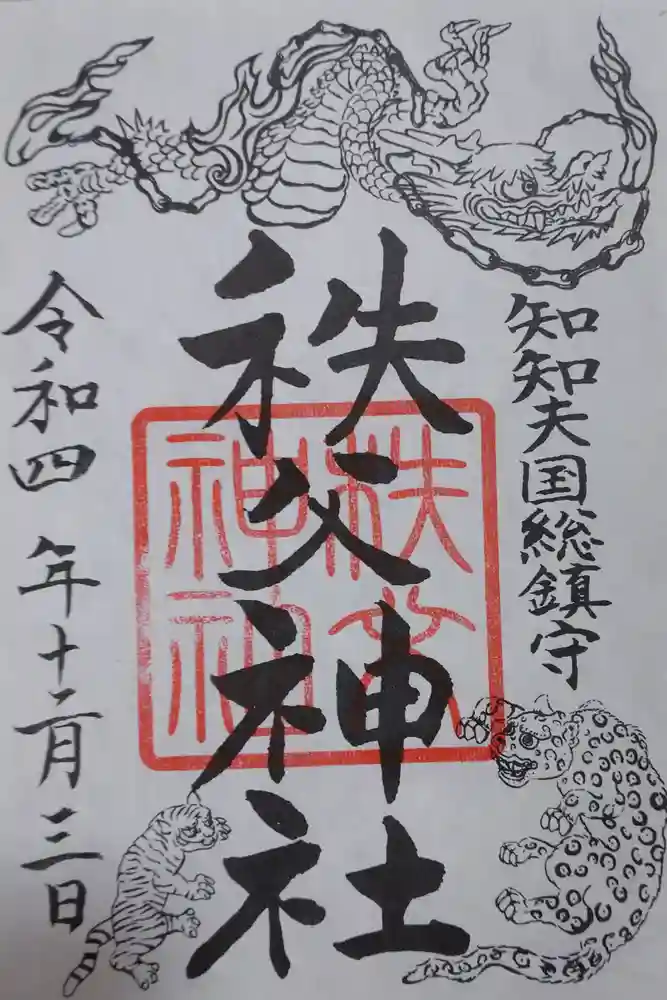 知知夫国総鎮守
秩父神社
秩父
神社
令和四年十二月三日